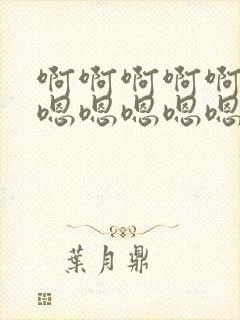 啊啊啊啊啊
嗯嗯嗯嗯嗯
葉月鼎